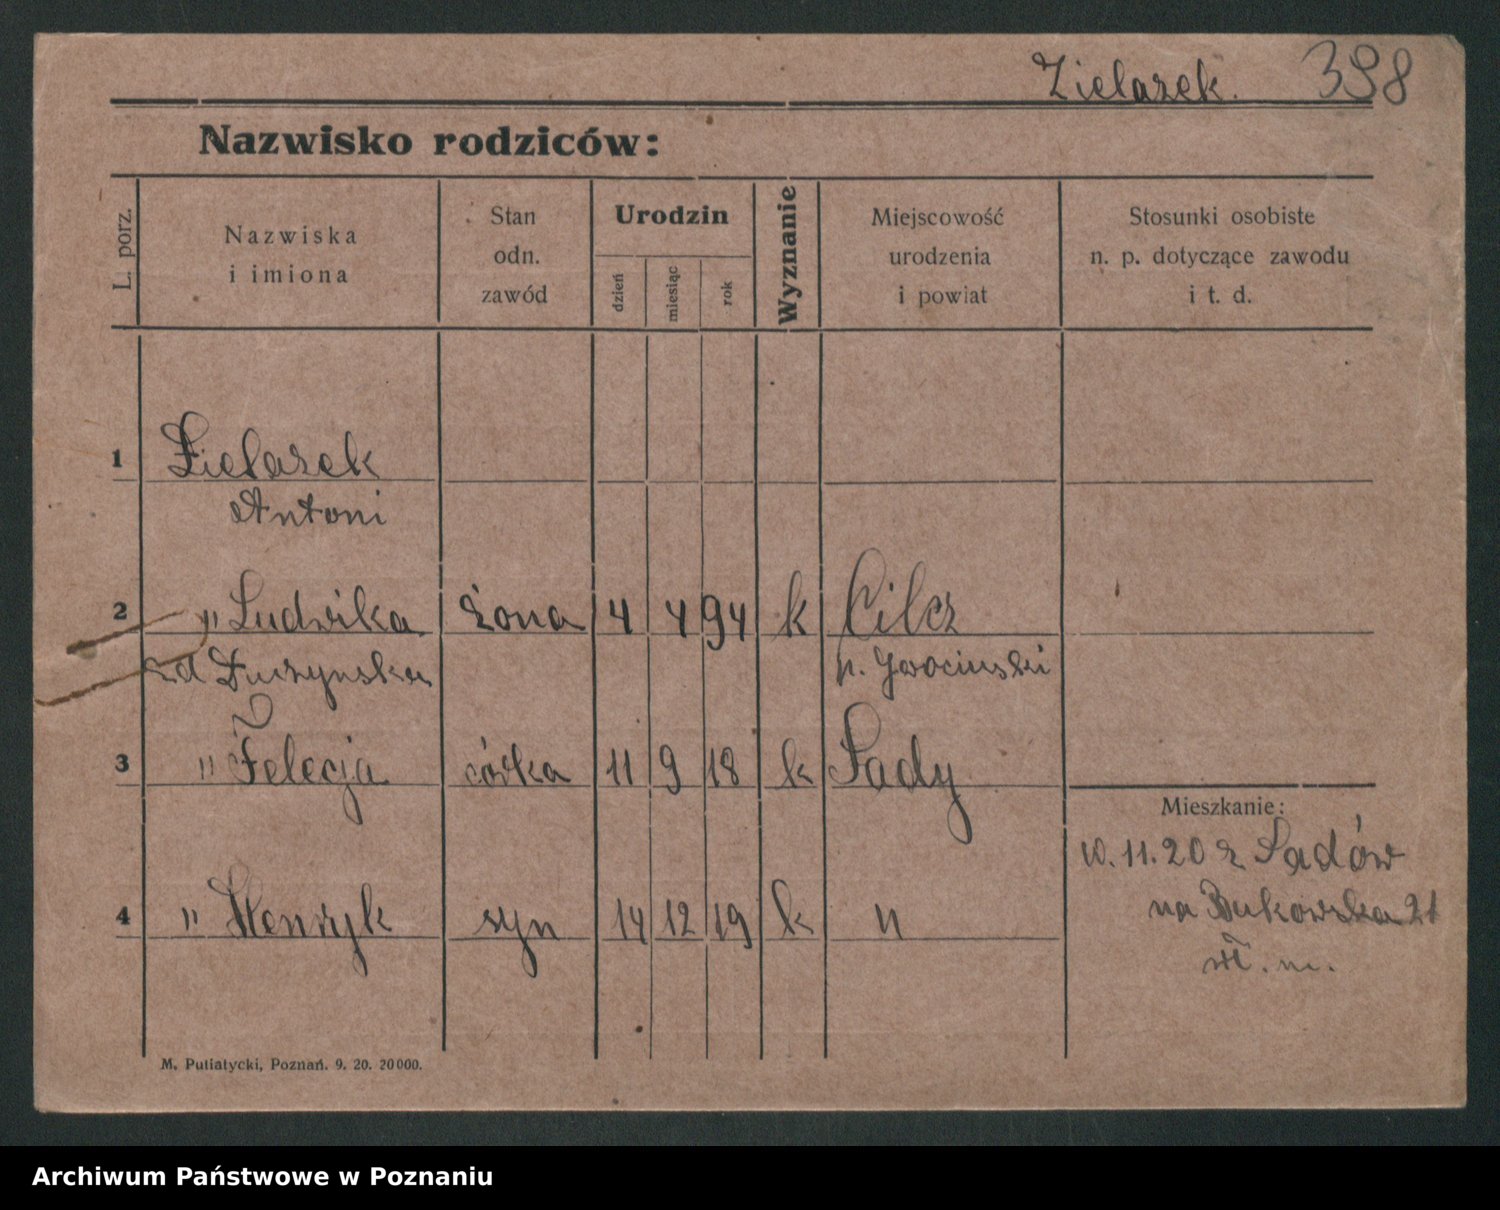 Zielazek. 398
Nazwisko rodziców:
L. porz.
Nazwiska
i imiona
Stan
odn.
zawód
Urodzin
dzień
miesiąc
rok
Wyznanie
Miejscowość
urodzenia
i powiat
Stosunki osobiste
n. p. dotyczące zawodu
i t. d.
1 Zielazek
Antoni
2 " Ludwika żona 4 4 94 k Cilcz
zd p. Jarociński
3 " Felecja córka 11 9 18 k Sady
Mieszkanie:
11.20 z Sadów
4 " Henryk syn 14 12 19 k "
na Bukowska 21
M. Putiatycki, Poznań. 9. 20. 20000.
Archiwum Państwowe w Poznaniu